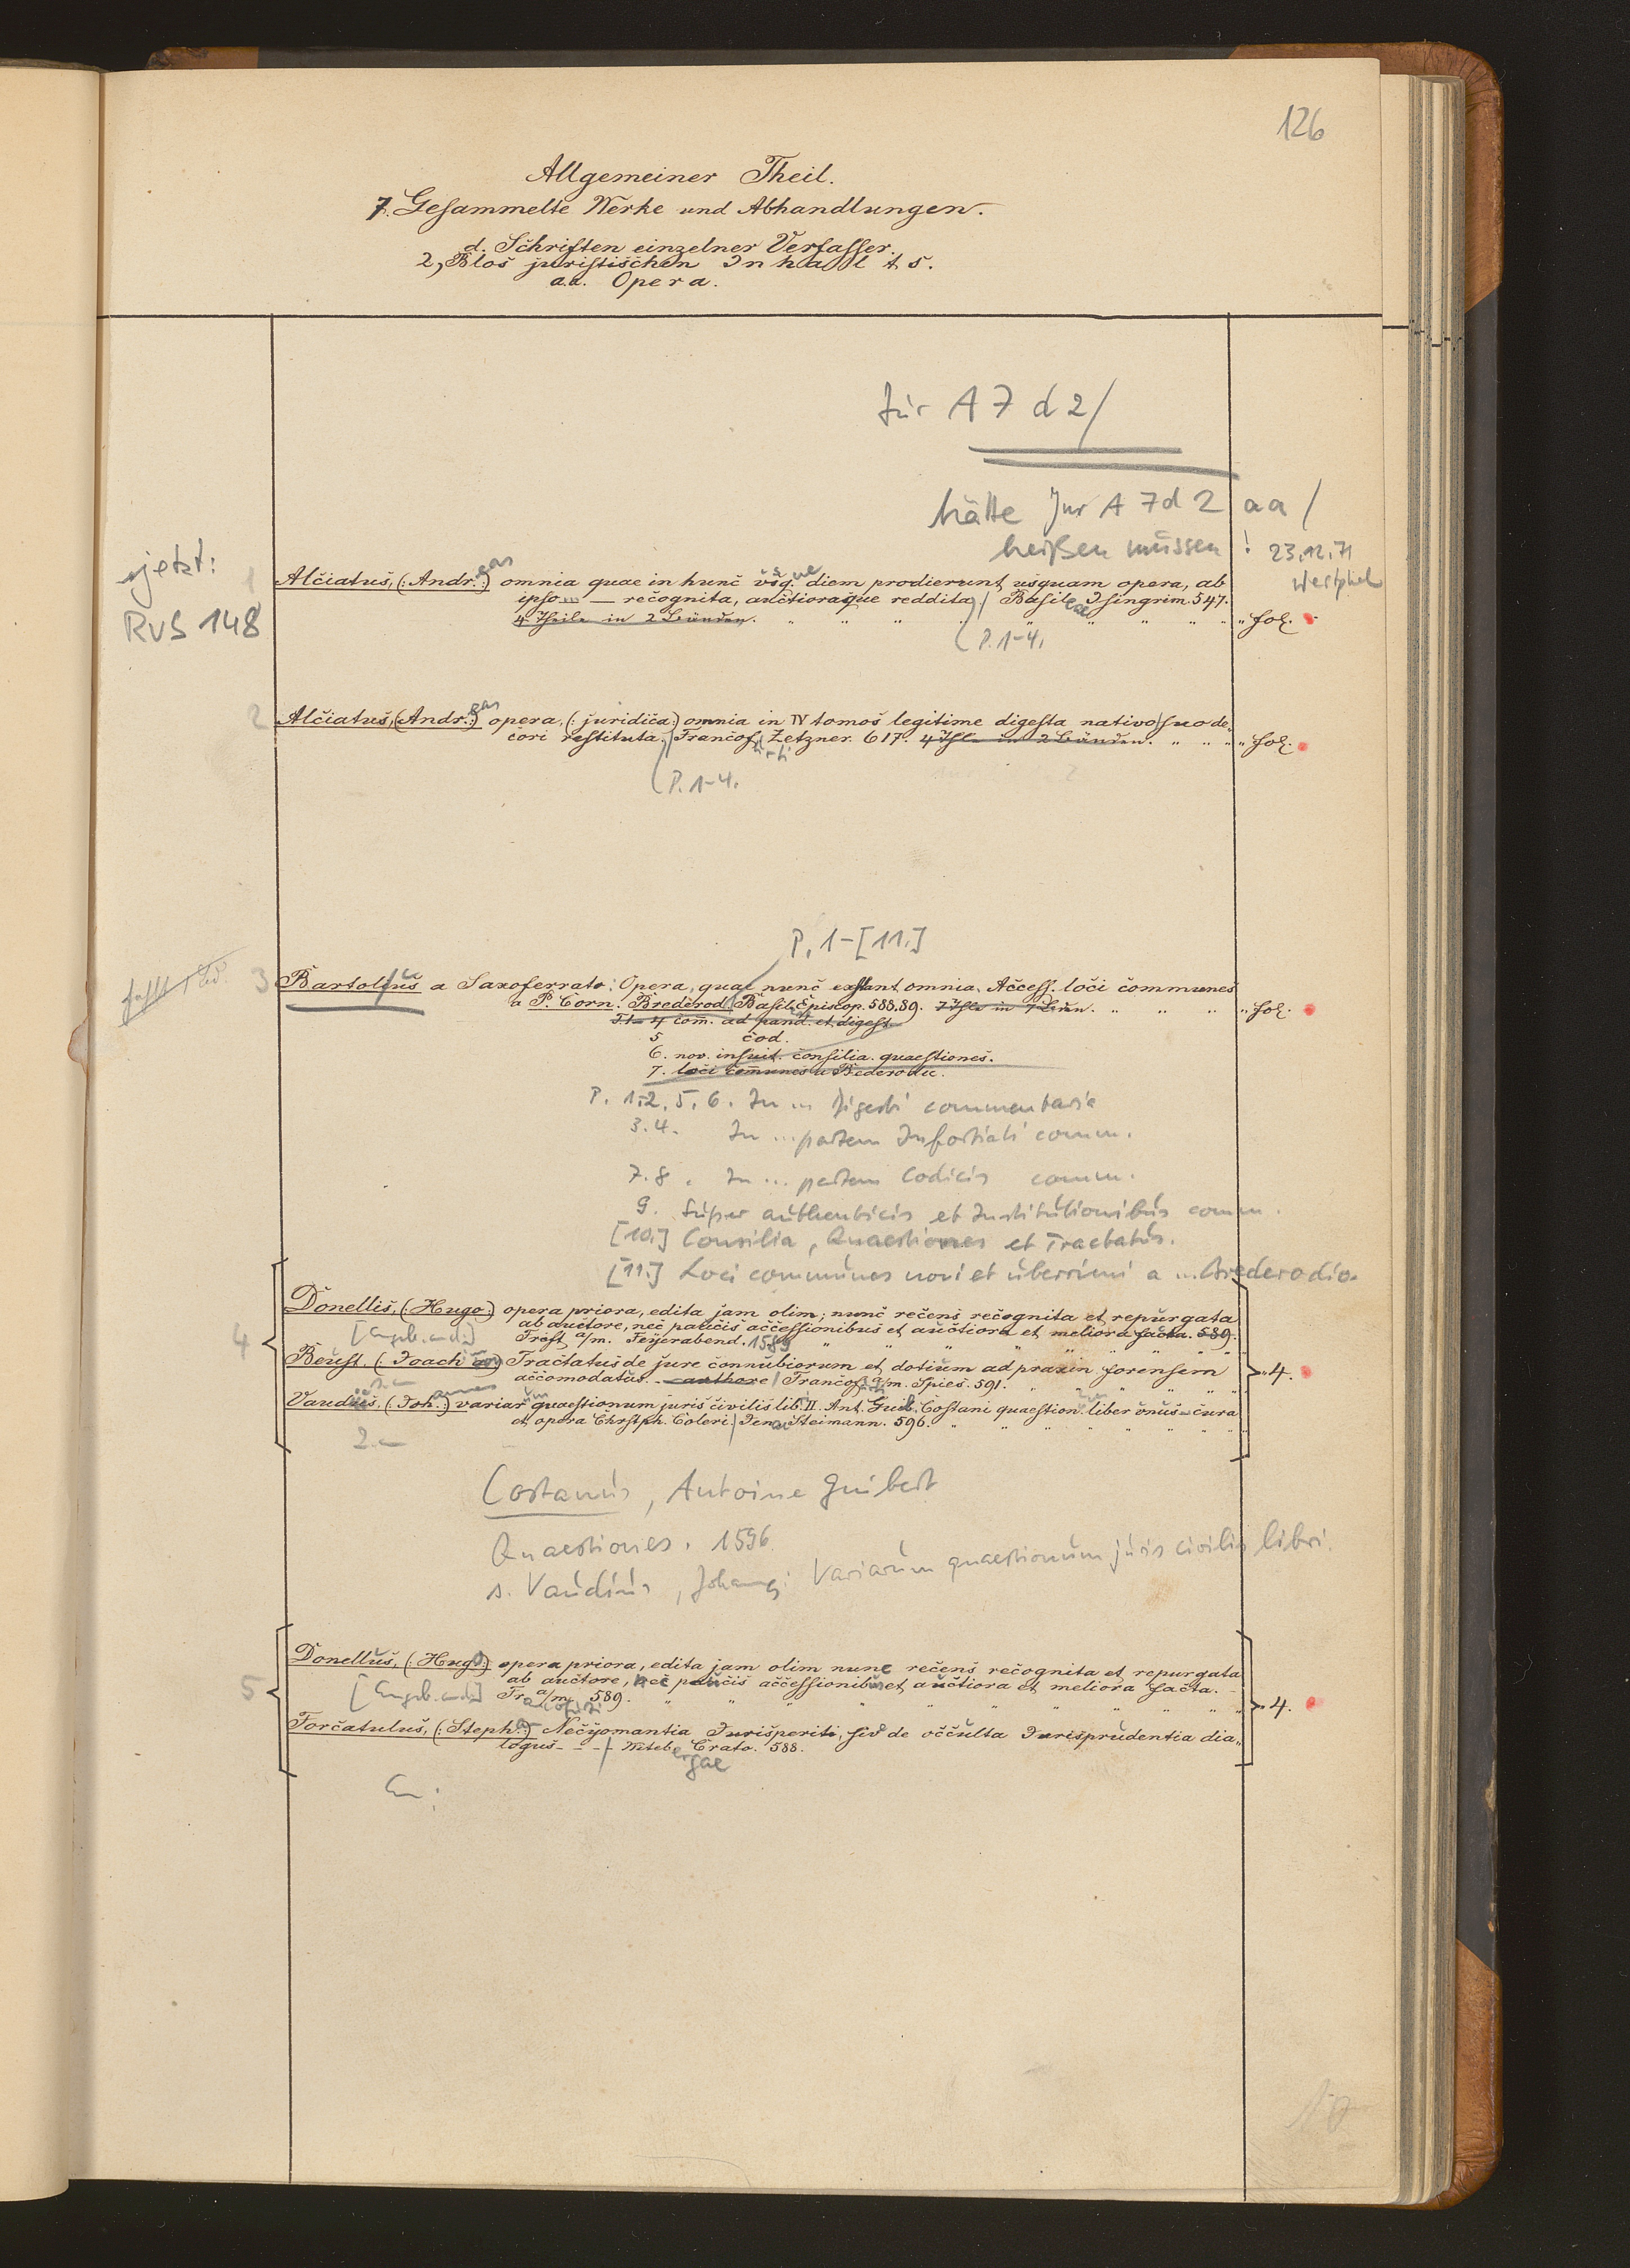 126
Allgemeiner Theil.
7. Gesammelte Werke und Abhandlungen.
d. Schriften einzelner Verfasser.
2, Blos juristischen Inhalts.
a.a. Opera.
Jur A 7 d 2/
hätte Jur A 7d 2 aa /
heißen müssen! 23.12.71
Westphal
jetzt:
RVS 148
1 Alciatus, (: Andr.:) eas omnia quae in hunc usq. ue diem prodierunt usquam opera, ab
ipso ... — recognita, auctioraque reddita / Basileae Isingrim. 547.
4 Theile in 2 Bänden. " " " " " " " " " fol.
(P. 1-4.
2 Alciatus, (Andr.:) eas opera, (: juridica:) omnia in IV tomos legitime digesta nativo suo de,,
cori restituta. / Francof. Zetzner. 617. 4 Thle in 2 Bänden. " " " fol.
(P. 1-4.
P. 1-[11.]
fehlt 1 Bd.
3 Bartolus a Saxoferrato: Opera, quae nunc exstant omnia. Access. loci communes
a P. Corn. Brederod. Basil. Episcop. 588.89. 7 Thle in 7 Bden. " " " " fol.
T 1-4 com. ad pand. et digest.
5 cod.
6. nov. insuit. consilia. quaestiones.
7. loci communes a Bederodu.
P. 1.2, 5, 6. In ... Digesti commentaria
3.4. In ... partem Infortiati comm.
7.8. In ... partem Codicis comm.
9. Super authenticis et Institutionibus comm.
[10.] Consilia, Quaestiones et Tractatus.
[11.] Loci communes novi et uberrimi a ... Brederodio.
4 Donellis, (: Hugo:) opera priora, edita jam olim; nunc recens recognita et repurgata
ab auctore, nec paucis accessionibus et auctiora et meliora facta. 589.
[Angeb. an d:] Frcft a/m. Feyerabend. 1589 " " " " " " "
Beust. (: Joach :) Tractatus de jure connubiorum et dotium ad praxin forensem
1.— accomodatus. - authore / Francof. a/m. Spies. 591. " " " " " 4.
Vaudus, (Joh.:) annes variar um quaestionum juris civilis lib. II. Ant. Guib. Costani quaestion. um liber unus - cura
et opera Chrstph. Coleri. / Jenae Steimann. 596. " " " " " " "
2.—
Costanus, Antoine Guibert
Quaestiones. 1596.
s. Vaudus, Johannes: Variarum quaestionum juris civilis libri.
5 Donellus, (: Hugo:) opera priora, edita jam olim nunc recens recognita et repurgata
ab auctore, nec paucis accessionibus et auctiora et meliora facta. -
[Angeb. an d:] Fr. ancofurti a/m. 589. " " " " " " " " " 4.
Forcatulus, (: Steph.:) Necyomantia Jurisperiti, sive de occulta Jurisprudentia dia,,
logus - - - / Witeb ergae Crato. 588.
An: